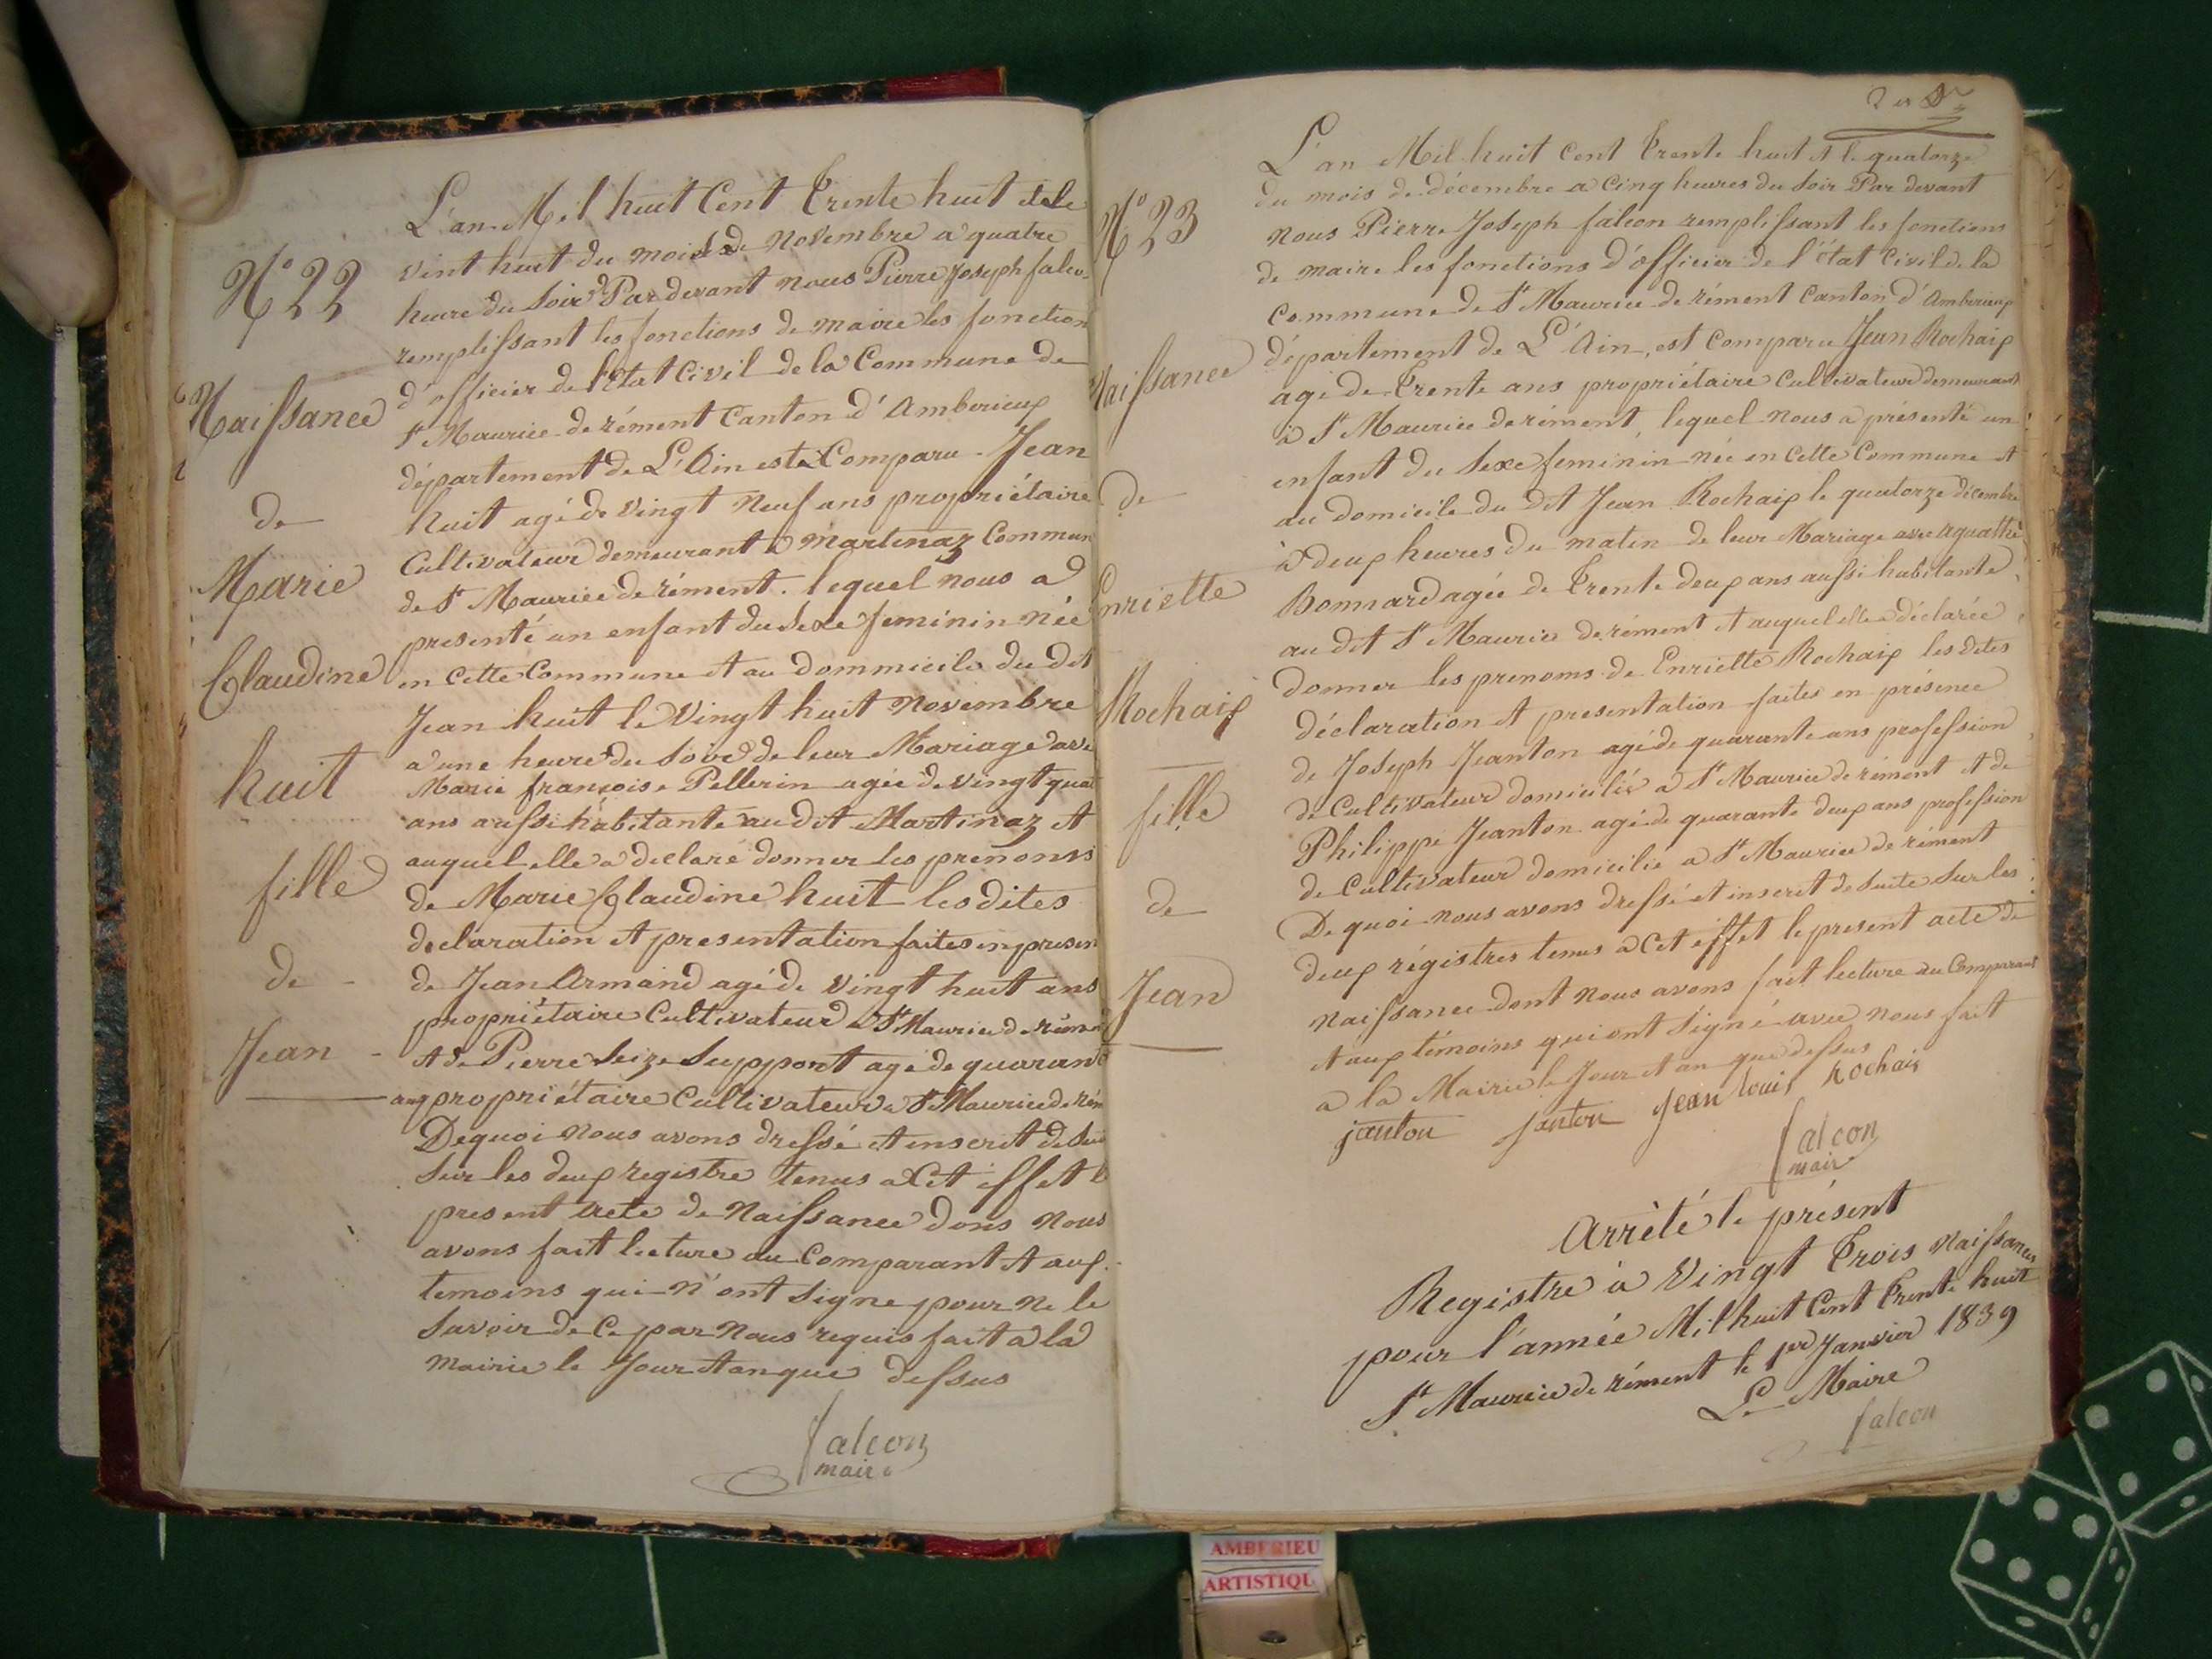 N° 22
Naissance
de
Marie
Claudine
huit
fille
de
Jean
L'an Mil huit Cent trente huit et le
vint huit du mois de Novembre a quatre
heure du soir Par devant nous Pierre Joseph falco
remplissant les fonctions de maire les fonction
d'officier de l'Etat Civil de la Commune de
St Maurice de rément Canton d'Amberieux
département de L'Ain est Comparu Jean
huit agé de vingt neuf ans propriétaire
Cultivateur demeurant a Martinaz Commun
de St Maurice de rément. lequel nous a
presenté un enfant du Sexe feminin née
en Cette Commune et au dommicile du dit
Jean huit le Vingt huit Novembre
a une heure du Soir de leur Mariage ave
Marie françoise Pellerin agée de vingt quat
ans aussi habitante au dit Martinaz et
auquel elle a declaré donner les prenoms
de Marie Claudine huit les dites
declaration et presentation faites en presen
de Jean Armand agé de vingt huit ans
propriétaire Cultivateur a St Maurice de rémen
et de Pierre Seize Suppont agé de quarante
ans propriétaire Cultivateur a St Maurice de rém
De quoi nous avons dressé et inscrit de Sui
Sur les deux registre tenus a Cet effet le
present acte de Naissance dons nous
avons fait lecture au Comparant et aux
temoins qui n'ont signe pour ne le
Savoir de Ce par nous requis fait a la
Mairie le Jour et an que dessus
falcon
maire
N° 23
Naissance
de
Enriette
Rochaix
fille
de
Jean
L'an Mil huit Cent trente huit et le quatorze
du mois de décembre a Cinq heures du Soir Par devant
nous Pierre Joseph falcon remplissant les fonctions
de maire les fonctions d'officier de l'état Civil de la
Commune de St Maurice de rément Canton d'Amberieux
département de L'Ain, est Comparu Jean Rochaix
agé de trente ans propriétaire Cultivateur demeurant
à St Maurice de rément, lequel nous a présenté un
enfant du Sexe feminin née en Cette Commune et
au domicile du dit Jean Rochaix le quatorze décembre
à deux heures du matin de leur Mariage avec Aguathe
Bonnard agée de trente deux ans aussi habitante
au dit St Maurice de rément et auquel elle a déclarée
donner les prenoms de Enriette Rochaix les dites
déclaration et presentation faites en présence
de Joseph Jeanton agé de quarante ans profession
de Cultivateur domicilié a St Maurice de rément et de
Philippe Jeanton agé de quarante deux ans profession
de Cultivateur domicilie a St Maurice de rément
De quoi nous avons dressé et inscrit de Suite Sur les
deux régistres tenus a Cet effet le present acte de
Naissance dont nous avons fait lecture au Comparant
et aux témoins qui ont Signé avec nous fait
a la Mairie le Jour et an que dessus
jantou Jantou Jean Louis Rochais
falcon
maire
Arrêté le présent
Registre à Vingt trois Naissances
pour l'année Mil huit Cent trente huit
St Maurice de rément le 1er Janvier 1839
Le Maire
falcon
AMBERIEU
ARTISTIQU